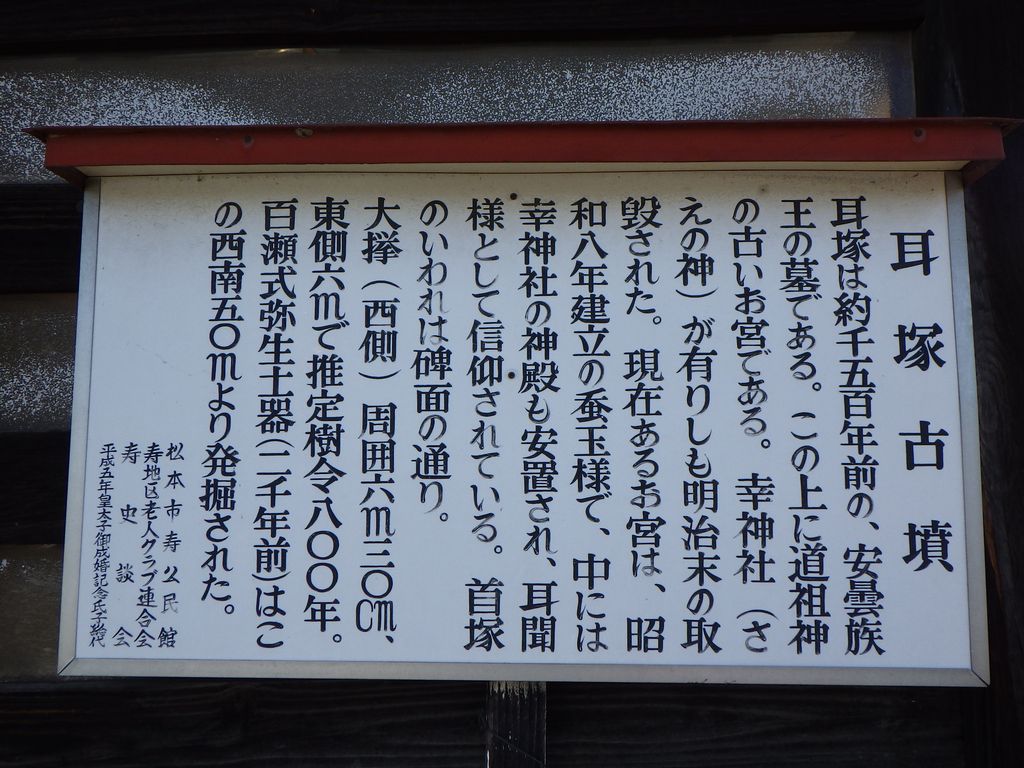 耳塚古墳
耳塚は約千五百年前の、安曇族
王の墓である。この上に道祖神
の古いお宮である。幸神社（さ
えの神）が有りしも明治末の取
毀された。現在あるお宮は、昭
和八年建立の蚕玉様で、中には
幸神社の神殿も安置され、耳聞
様として信仰されている。首塚
のいわれは碑面の通り。
大欅（西側）周囲六m三〇cm、
東側六mで推定樹令八〇〇年。
百瀬式弥生土器(二千年前)はこ
の西南五〇mより発掘された。
松本市寿公民館
寿地区老人クラブ連合会
寿史談会
平成五年皇太子御成婚記念氏子総代